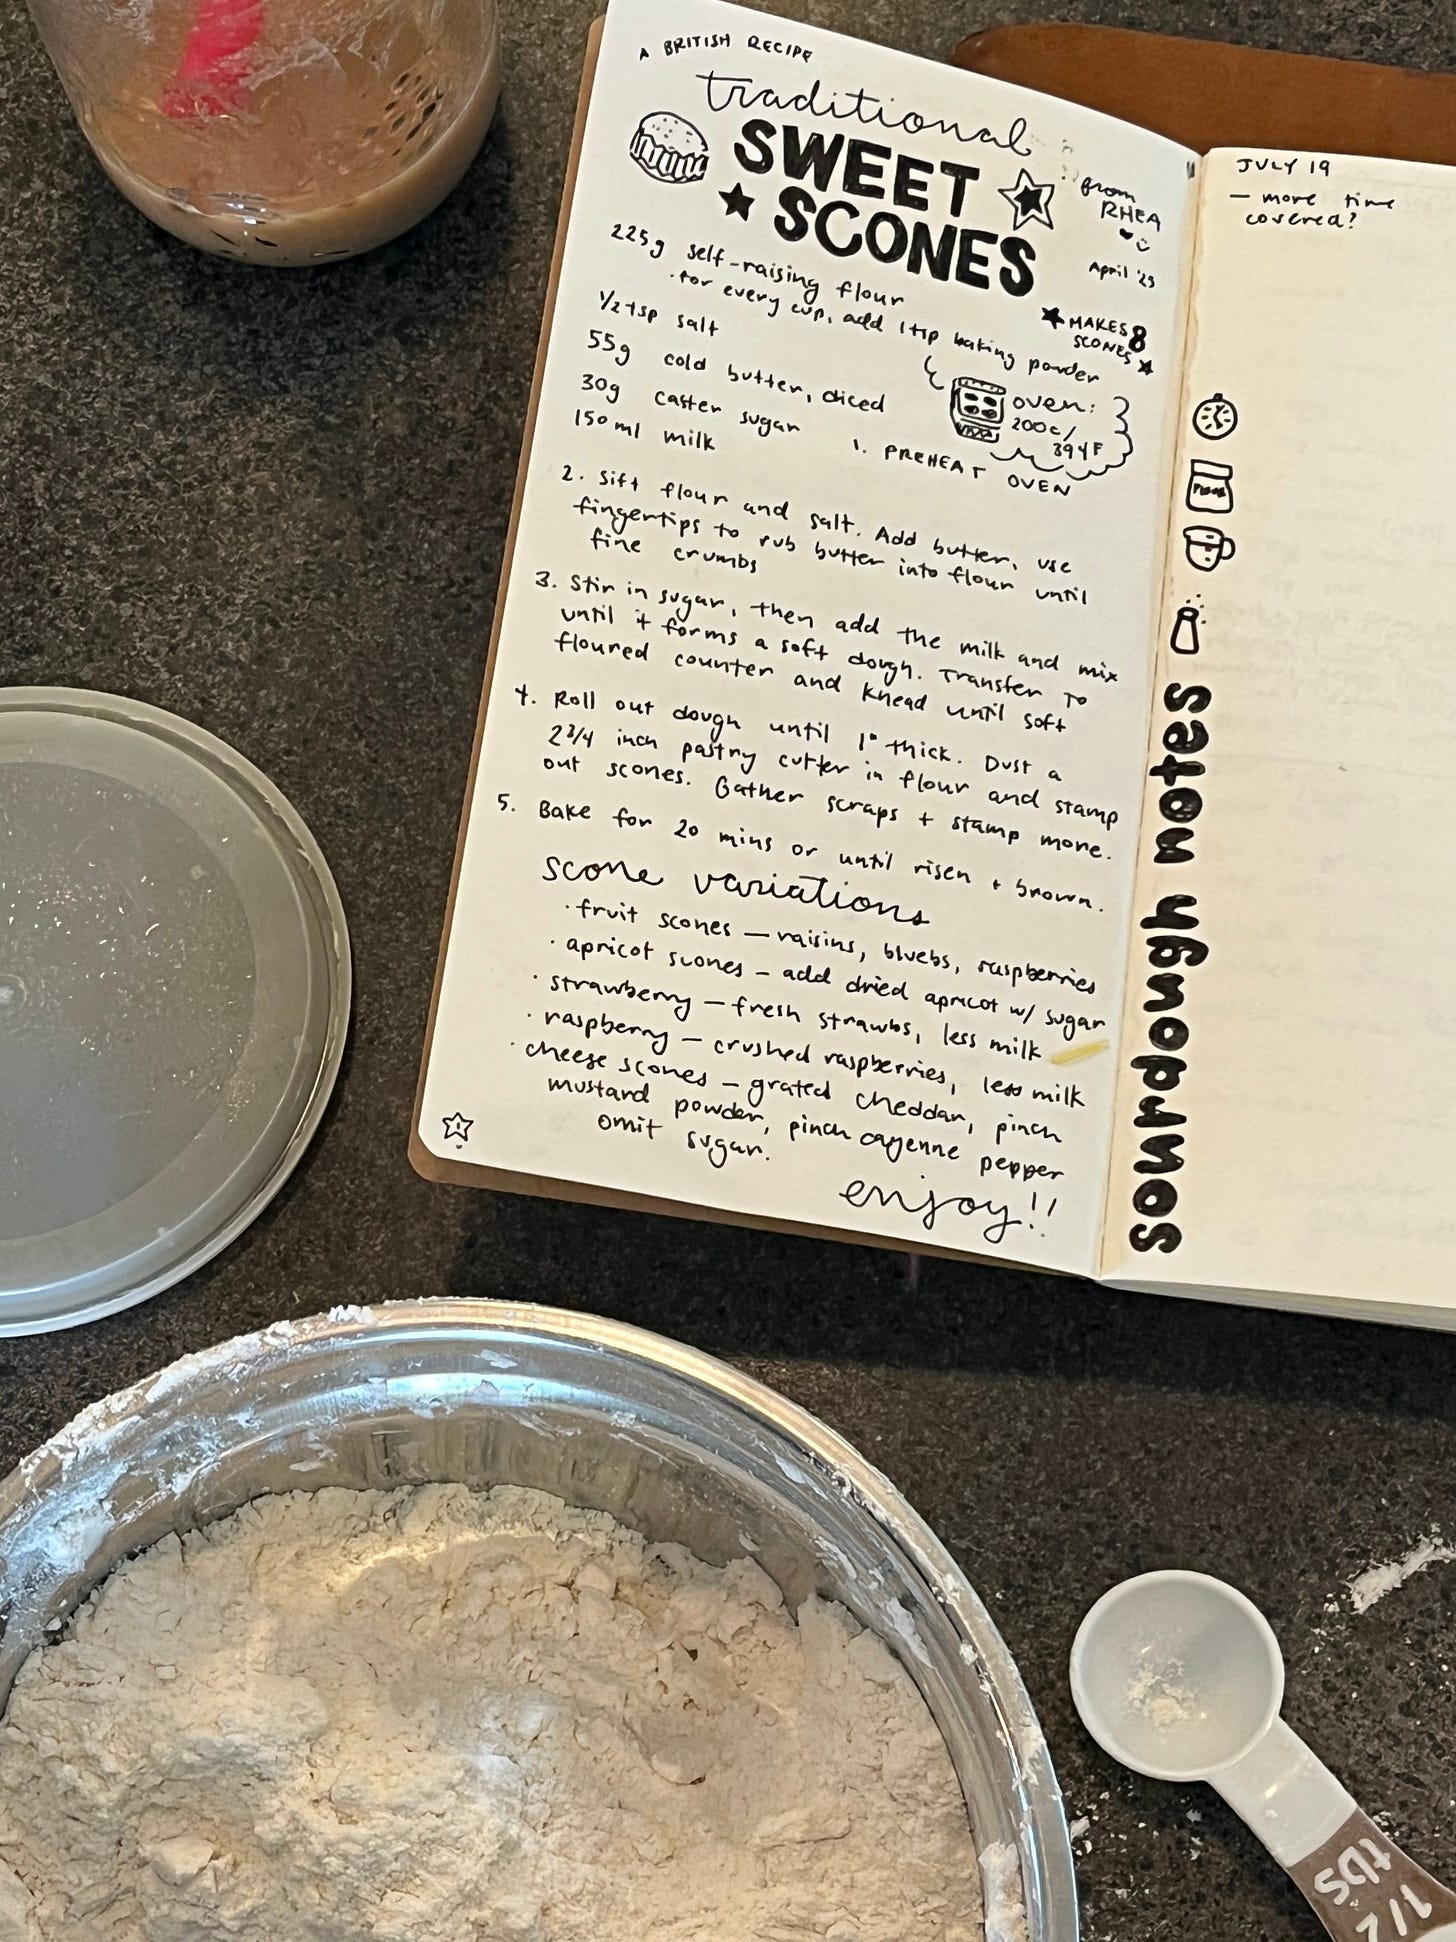 A BRITISH RECIPE
traditional
SWEET
SCONES
from
RHEA
April '23
MAKES 8
SCONES
225g self-raising flour
· for every cup, add 1 tsp baking powder
1/2 tsp salt
55g cold butter, diced
30g caster sugar
150ml milk
oven:
200c/
394F
1. PREHEAT OVEN
2. Sift flour and salt. Add butter, use
fingertips to rub butter into flour until
fine crumbs
3. Stir in sugar, then add the milk and mix
until it forms a soft dough. Transfer to
floured counter and knead until soft
4. Roll out dough until 1" thick. Dust a
2 3/4 inch pastry cutter in flour and stamp
out scones. Gather scraps + stamp more.
5. Bake for 20 mins or until risen + brown.
scone variations
· fruit scones — raisins, bluebs, raspberries
· apricot scones — add dried apricot w/ sugar
· strawberry — fresh strawbs, less milk
· raspberry — crushed raspberries, less milk
· cheese scones — grated cheddar, pinch
mustard powder, pinch cayenne pepper
omit sugar.
enjoy!!
JULY 19
— more time
covered?
FLOUR
sourdough notes
1/2
tbs